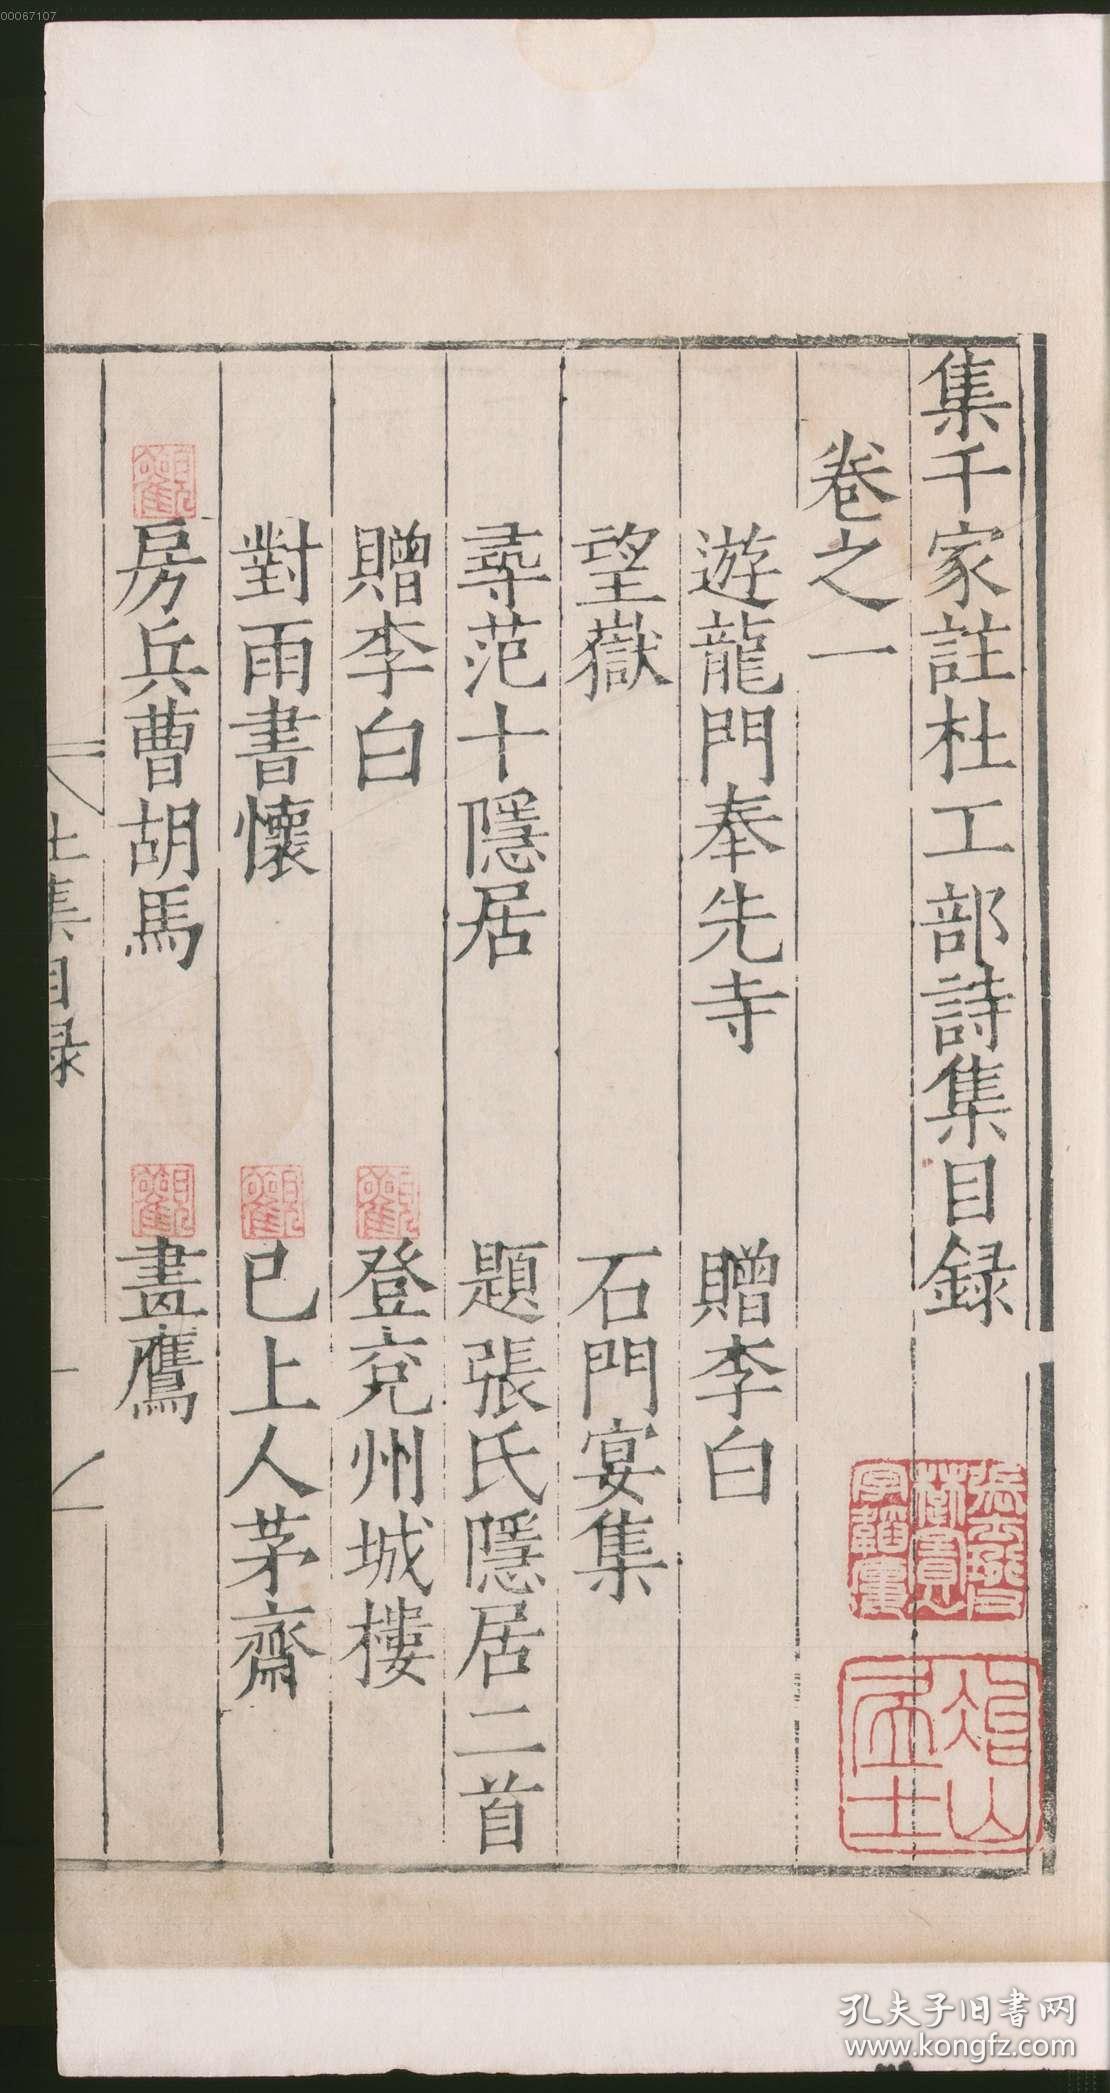 00067107
集千家註杜工部詩集目録
卷之一
遊龍門奉先寺 贈李白
望嶽 石門宴集
尋范十隱居 題張氏隱居二首
贈李白 登兖州城樓
對雨書懷 已上人茅齋
房兵曹胡馬 畫鷹
集目録
居士
孔夫子旧書网
www.kongfz.com